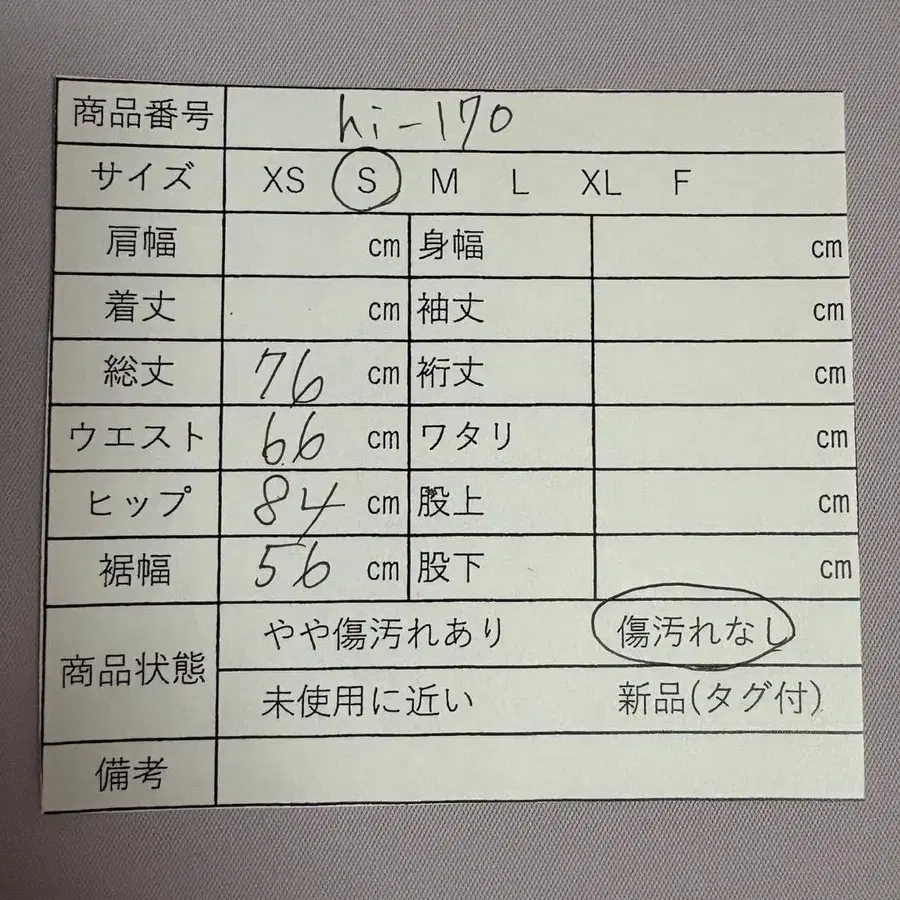 商品番号 hi-170
サイズ XS S M L XL F
肩幅 cm 身幅 cm
着丈 cm 袖丈 cm
総丈 76 cm 裄丈 cm
ウエスト 66 cm ワタリ cm
ヒップ 84 cm 股上 cm
裾幅 56 cm 股下 cm
商品状態 やや傷汚れあり 傷汚れなし
未使用に近い 新品(タグ付)
備考